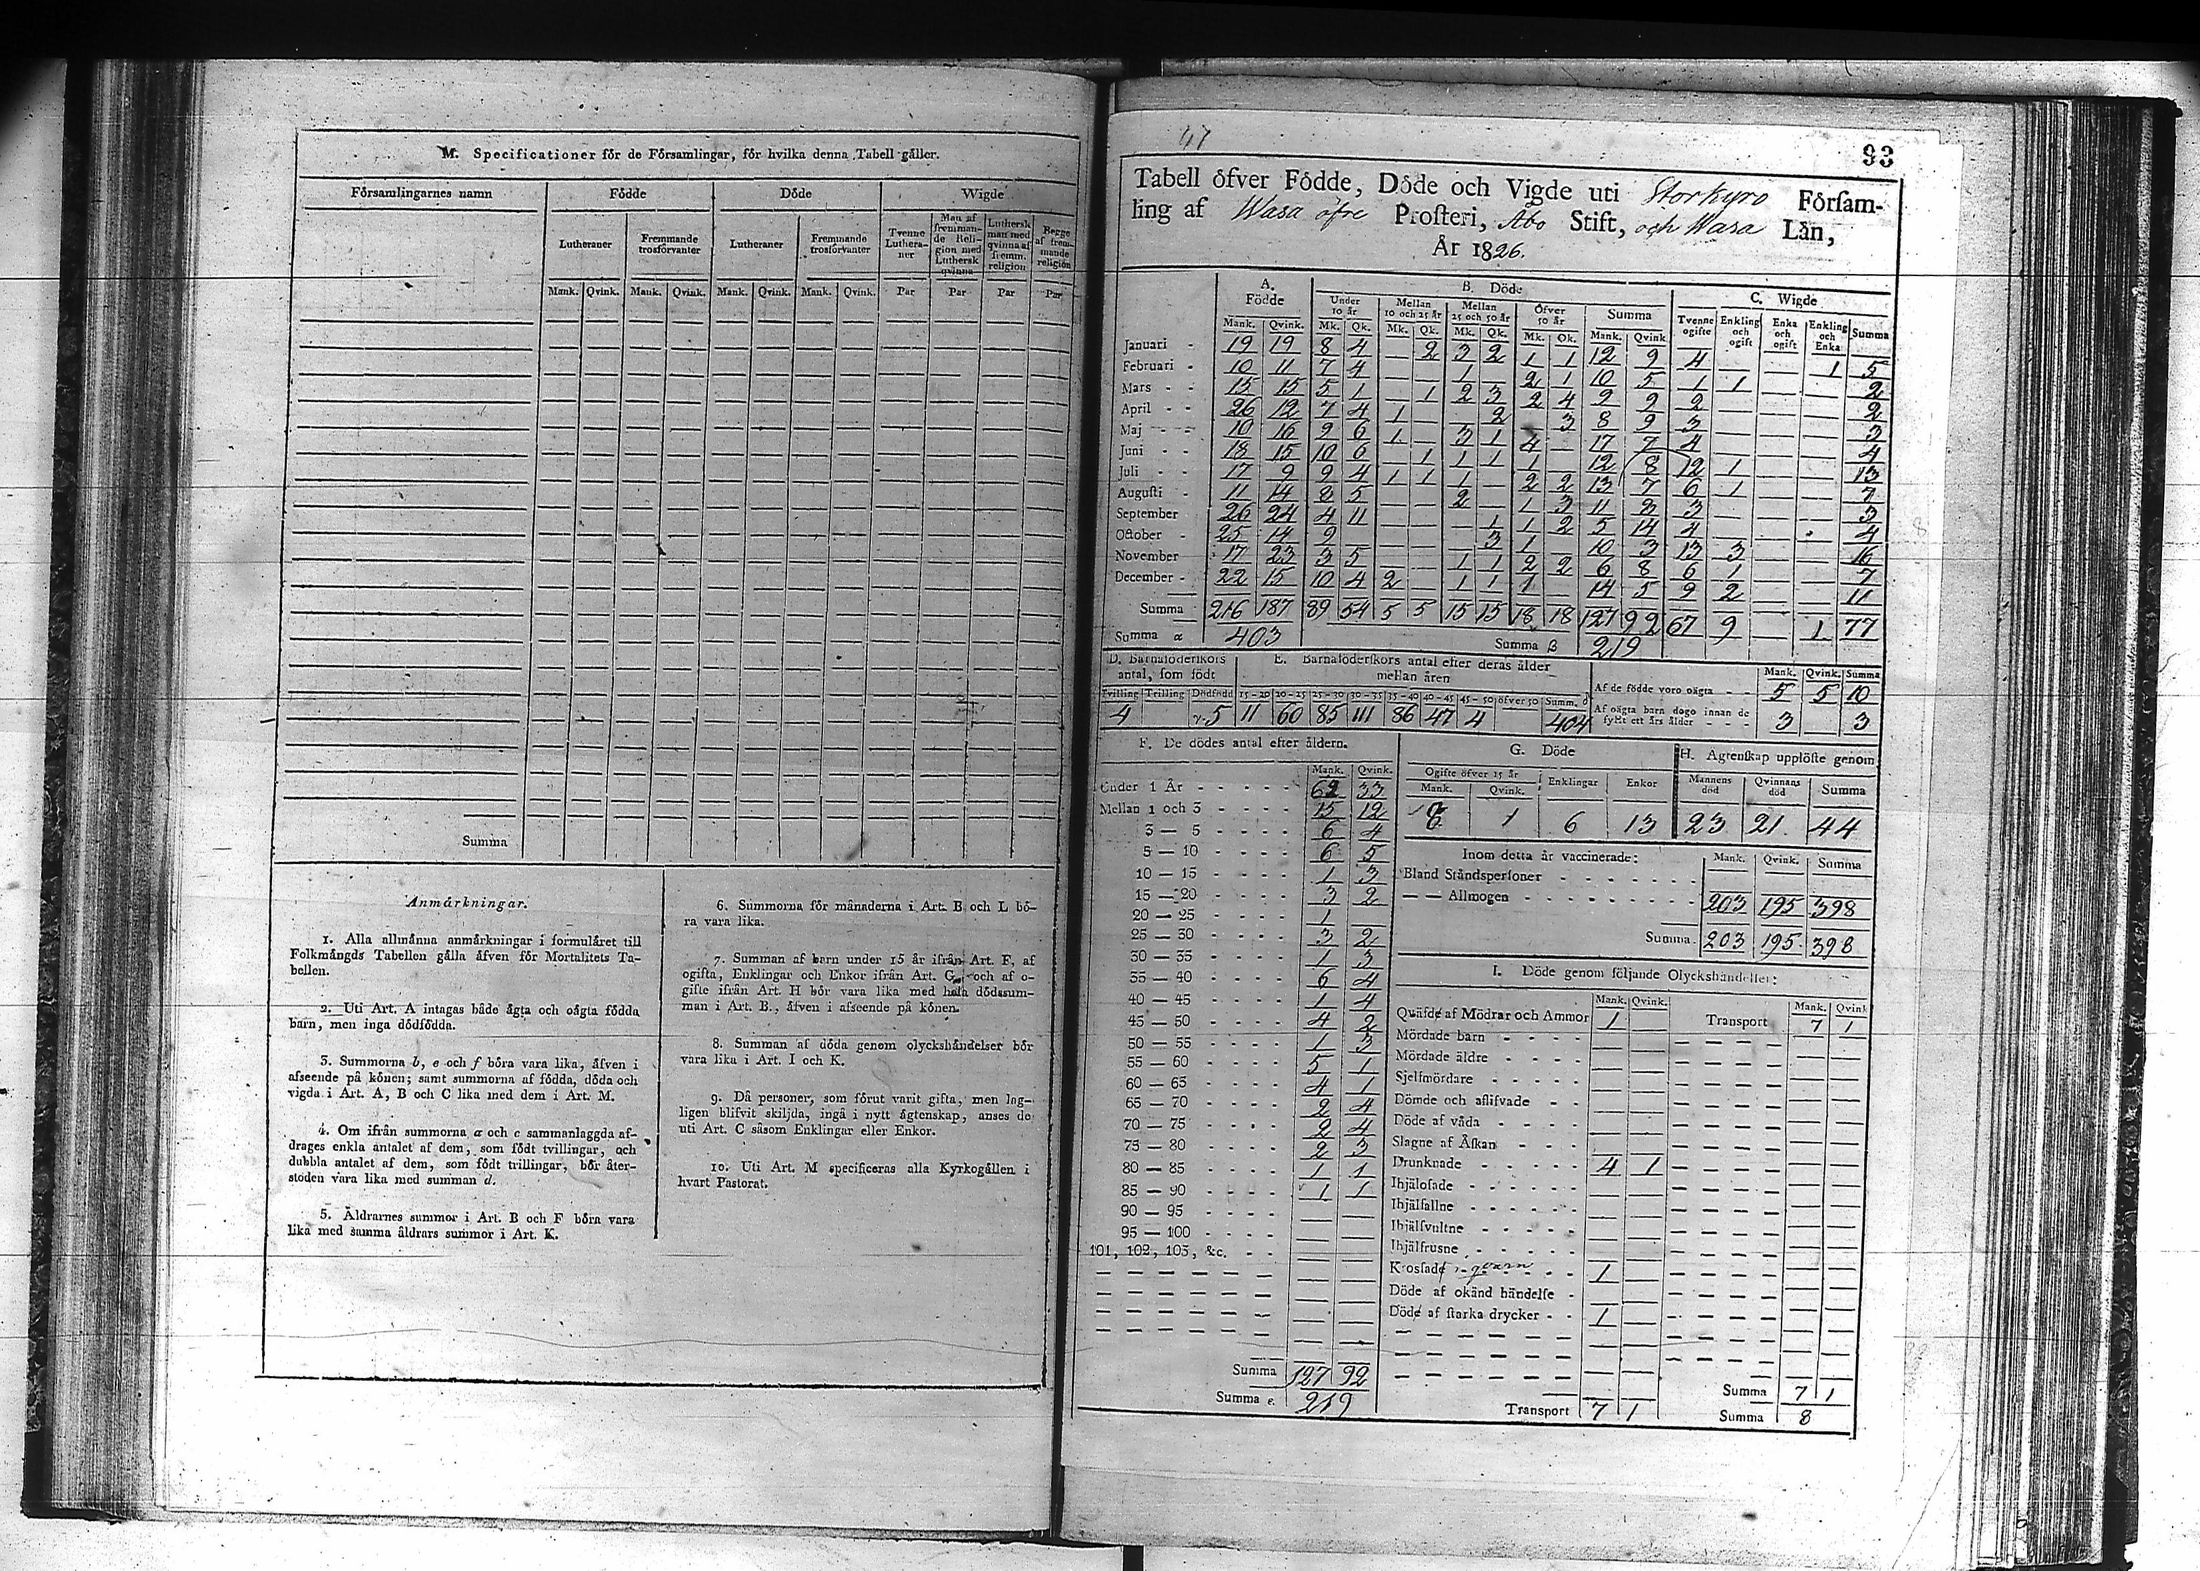 M. Specificationer för de Församlingar, för hvilka denna Tabell gäller.
Församlingarnes namn Födde Döde Wigde
Lutheraner Fremmande trosförvanter Lutheraner Fremmande trosförvanter Tvenne Lutheraner Man af fremmande Religion med Luthersk qvinna Luthersk man med qvinna af fremm. religion Begge af fremmande religion
Mank. Qvink. Mank. Qvink. Mank. Qvink. Mank. Qvink. Par Par Par Par
Summa
Anmärkningar.
1. Alla allmänna anmärkningar i formuläret till
Folkmängds Tabellen gälla äfven för Mortalitets Ta-
bellen.
2. Uti Art. A intagas både ägta och oägta födda
barn, men inga dödfödda.
3. Summorna b, e och f böra vara lika, äfven i
afseende på könen; samt summorna af födda, döda och
vigda i Art. A, B och C lika med dem i Art. M.
4. Om ifrån summorna a och c sammanlaggda af-
drages enkla antalet af dem, som födt tvillingar, och
dubbla antalet af dem, som födt trillingar, bör åter-
stoden vara lika med summan d.
5. Åldrarnes summor i Art. B och F böra vara
lika med samma åldrars summor i Art. K.
6. Summorna för månaderna i Art. B och L bö-
ra vara lika.
7. Summan af barn under 15 år ifrån Art. F, af
ogifta, Enklingar och Enkor ifrån Art. G, och af o-
gifte ifrån Art. H bör vara lika med hela dödssum-
man i Art. B., äfven i afseende på könen.
8. Summan af döda genom olyckshändelser bör
vara lika i Art. I och K.
9. Då personer, som förut varit gifta, men lag-
ligen blifvit skiljda, ingå i nytt ägtenskap, anses de
uti Art. C såsom Enklingar eller Enkor.
10. Uti Art. M specificeras alla Kyrkogällen i
hvart Pastorat.
47
93
Tabell öfver Födde, Döde och Vigde uti Storkyro Försam-
ling af Wasa öfre Prosteri, Åbo Stift, och Wasa Län,
År 1826.
A. Födde B. Döde C. Wigde
Under 10 år Mellan 10 och 25 år Mellan 25 och 50 år Öfver 50 år Summa Tvenne ogifte Enkling och ogift Enka och ogift Enkling och Enka Summa
Mank. Qvink. Mk. Qk. Mk. Qk. Mk. Qk. Mk. Qk. Mank. Qvink
Januari 19 19 8 4 — 2 3 2 1 1 12 9 4 — — 1 5
Februari 10 11 7 4 — — 1 — 2 1 10 5 1 1 — — 2
Mars 15 15 5 1 — 1 2 3 2 4 9 9 2 — — — 2
April 26 12 7 4 1 — — 2 — 3 8 9 3 — — — 3
Maj 10 16 9 6 1 — 3 1 4 — 17 7 4 — — — 4
Juni 18 15 10 6 — 1 1 1 1 — 12 8 12 1 — — 13
Juli 17 9 9 4 1 1 1 — 2 2 13 7 6 1 — — 7
Augusti 11 14 8 5 — — 2 — 1 3 11 8 3 — — — 3
September 26 24 4 11 — — — 1 1 2 5 14 4 — — — 4
October 25 14 9 — — — — 3 1 — 10 3 13 3 — — 16
November 17 23 3 5 — — 1 1 2 2 6 8 6 1 — — 7
December 22 15 10 4 2 — 1 1 1 — 14 5 9 2 — — 11
Summa 216 187 89 54 5 5 15 15 18 18 127 92 67 9 — 1 77
Summa a 403 Summa β 219
D. Barnaföderskors antal, som födt E. Barnaföderskors antal efter deras ålder mellan åren
Tvilling Trilling Dödfödd 15-20 20-25 25-30 30-35 35-40 40-45 45-50 öfver 50 Summ. d
4 5 11 60 85 111 86 47 4 404
Mank. Qvink. Summa
Af de födde voro oägta 5 5 10
Af oägta barn dogo innan de fyllt ett års ålder 3 — 3
F. De dödes antal efter åldern.
Mank. Qvink.
Under 1 År 62 33
Mellan 1 och 3 15 12
3 — 5 6 4
5 — 10 6 5
10 — 15 1 3
15 — 20 3 2
20 — 25 1 —
25 — 30 3 2
30 — 35 1 3
35 — 40 6 4
40 — 45 1 4
45 — 50 4 2
50 — 55 1 3
55 — 60 5 1
60 — 65 4 1
65 — 70 2 4
70 — 75 2 4
75 — 80 2 3
80 — 85 1 1
85 — 90 1 1
90 — 95
95 — 100
101, 102, 103, &c.
Summa 127 92
Summa e. 219
G. Döde
Ogifte öfver 15 år Enklingar Enkor
Mank. Qvink.
1 6 13
H. Ägtenskap upplöste genom
Mannens död Qvinnans död Summa
23 21 44
Inom detta år vaccinerade: Mank. Qvink. Summa
Bland Ståndspersoner
— — Allmogen 203 195 398
Summa 203 195 398
I. Döde genom följande Olyckshändelser:
Mank. Qvink. Mank. Qvink
Qväfde af Mödrar och Ammor 1 — Transport 7 1
Mördade barn
Mördade äldre
Sjelfmördare
Dömde och aflifvade
Döde af våda
Slagne af Åskan
Drunknade 4 1
Ihjälosade
Ihjälfallne
Ihjälsvultne
Ihjälfrusne
Krossade i qvarn 1 —
Döde af okänd händelse
Döde af starka drycker 1 —
Summa 7 1
Transport 7 1 Summa 8